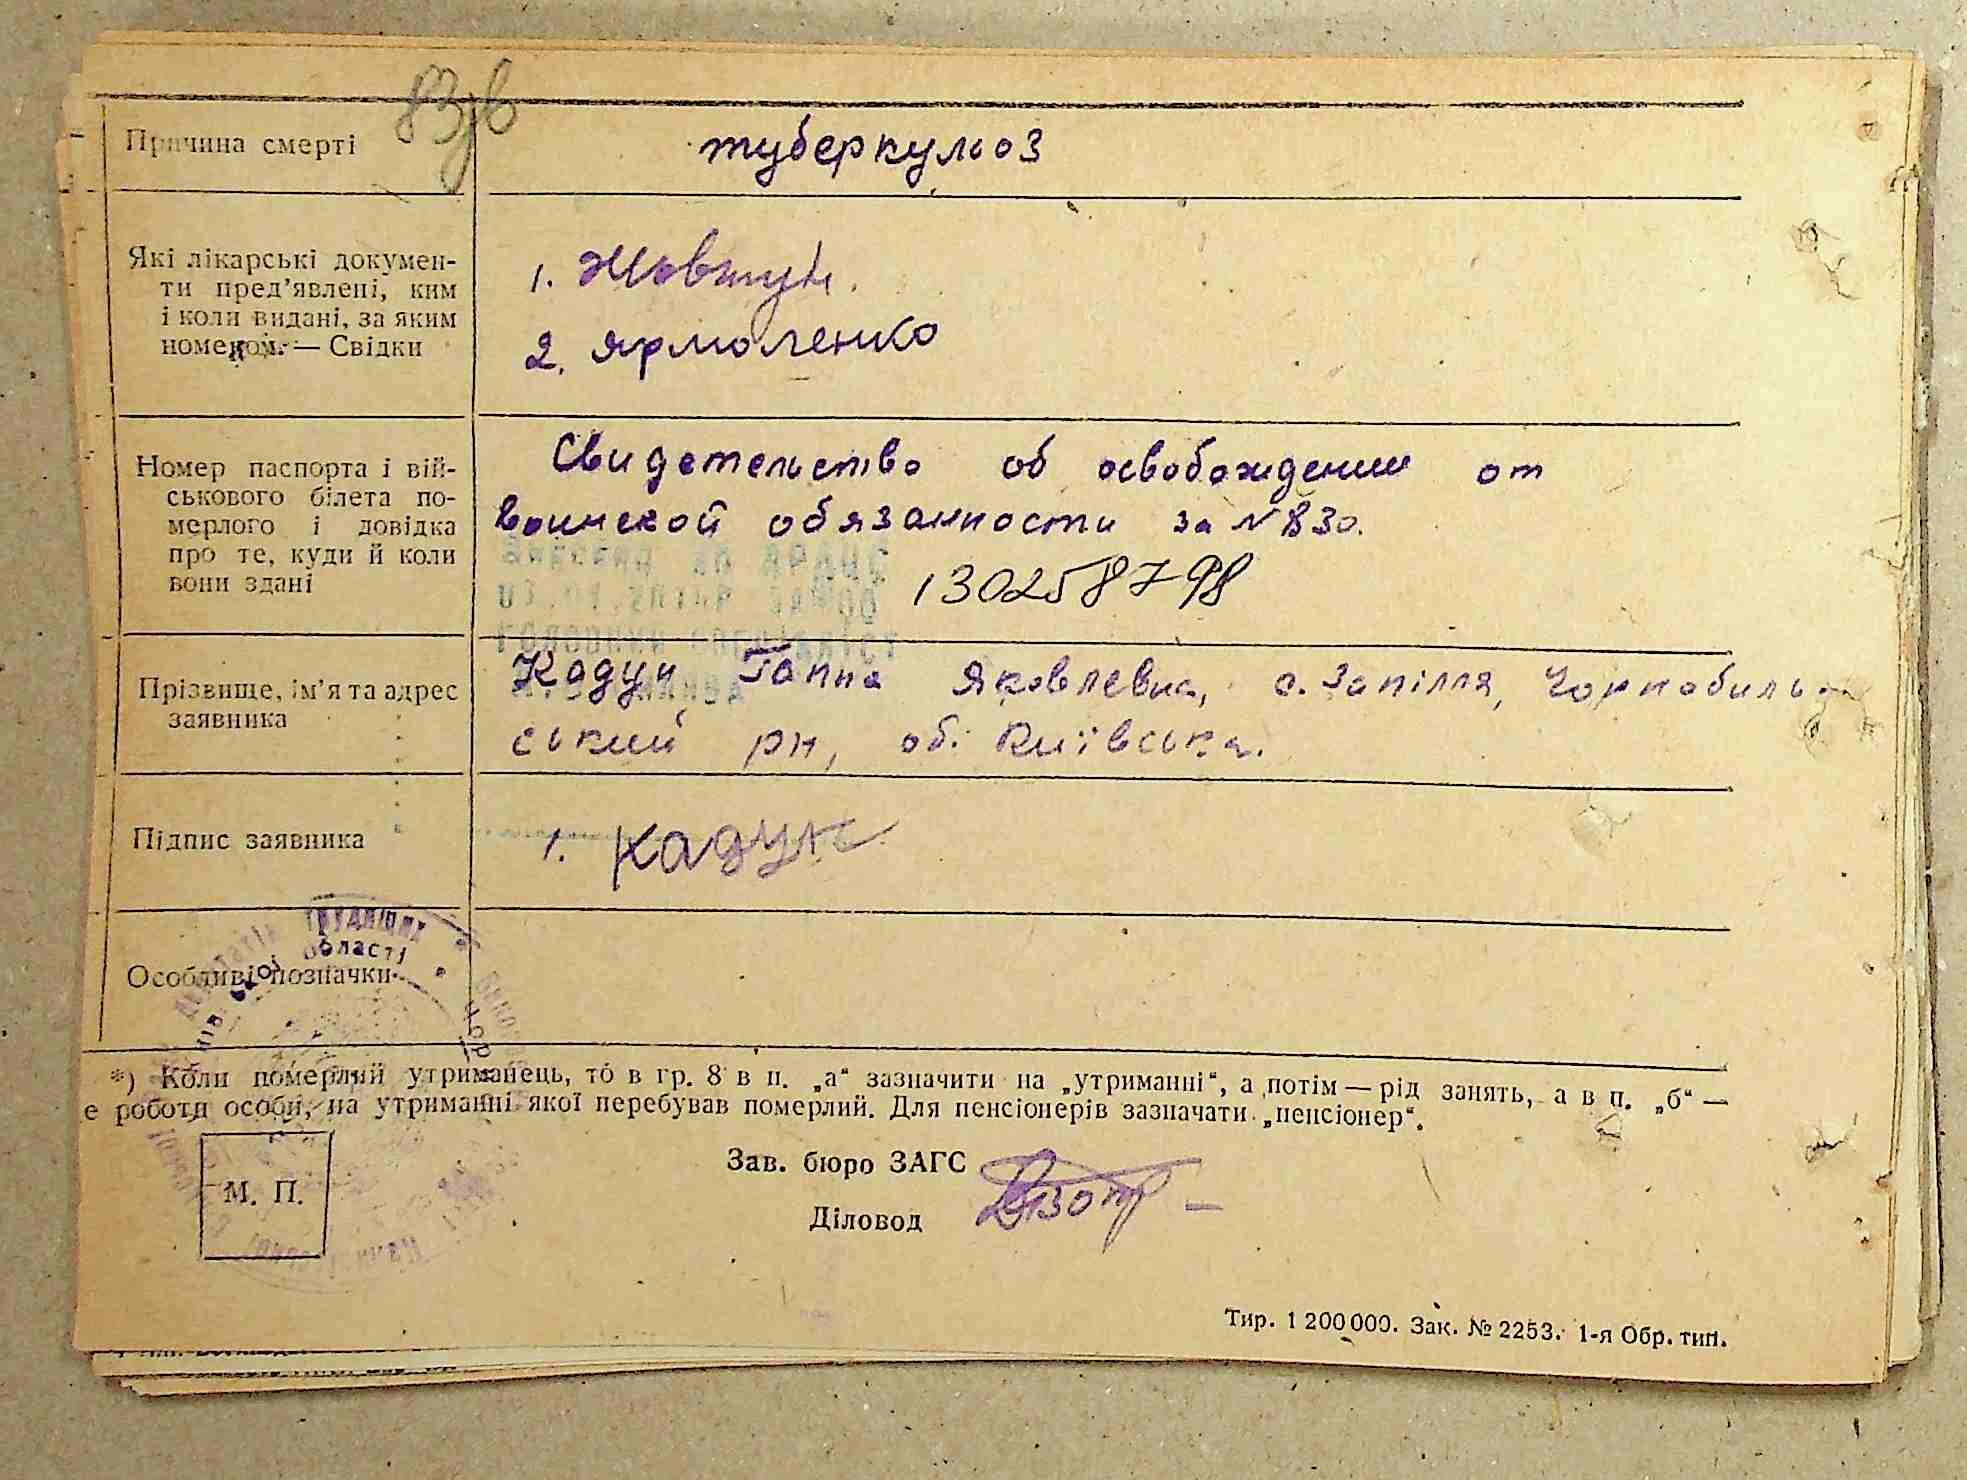 83зв
Причина смерті
туберкульоз
Які лікарські докумен-
ти пред'явлені, ким
і коли видані, за яким
номером. — Свідки
1. Жовтун.
2. Ярмоленко
Номер паспорта і вій-
ськового білета по-
мерлого і довідка
про те, куди й коли
вони здані
Свидетельство об освобождении от
воинской обязанности за № 830.
130258798
Прізвище, ім'я та адрес
заявника
Кадун Ганна Яковлевна, с. Запілля, Чорнобиль-
ський рн, об. Київська.
Підпис заявника
1. Кадун
Особливі позначки
трудящих
області
*) Коли померлий утриманець, то в гр. 8 в п. „а“ зазначити на „утриманні“, а потім — рід занять, а в п. „б“ —
е роботи особи, на утриманні якої перебував померлий. Для пенсіонерів зазначати „пенсіонер“.
Зав. бюро ЗАГС
М. П.
Діловод
Тир. 1 200 000. Зак. № 2253. 1-я Обр. тип.